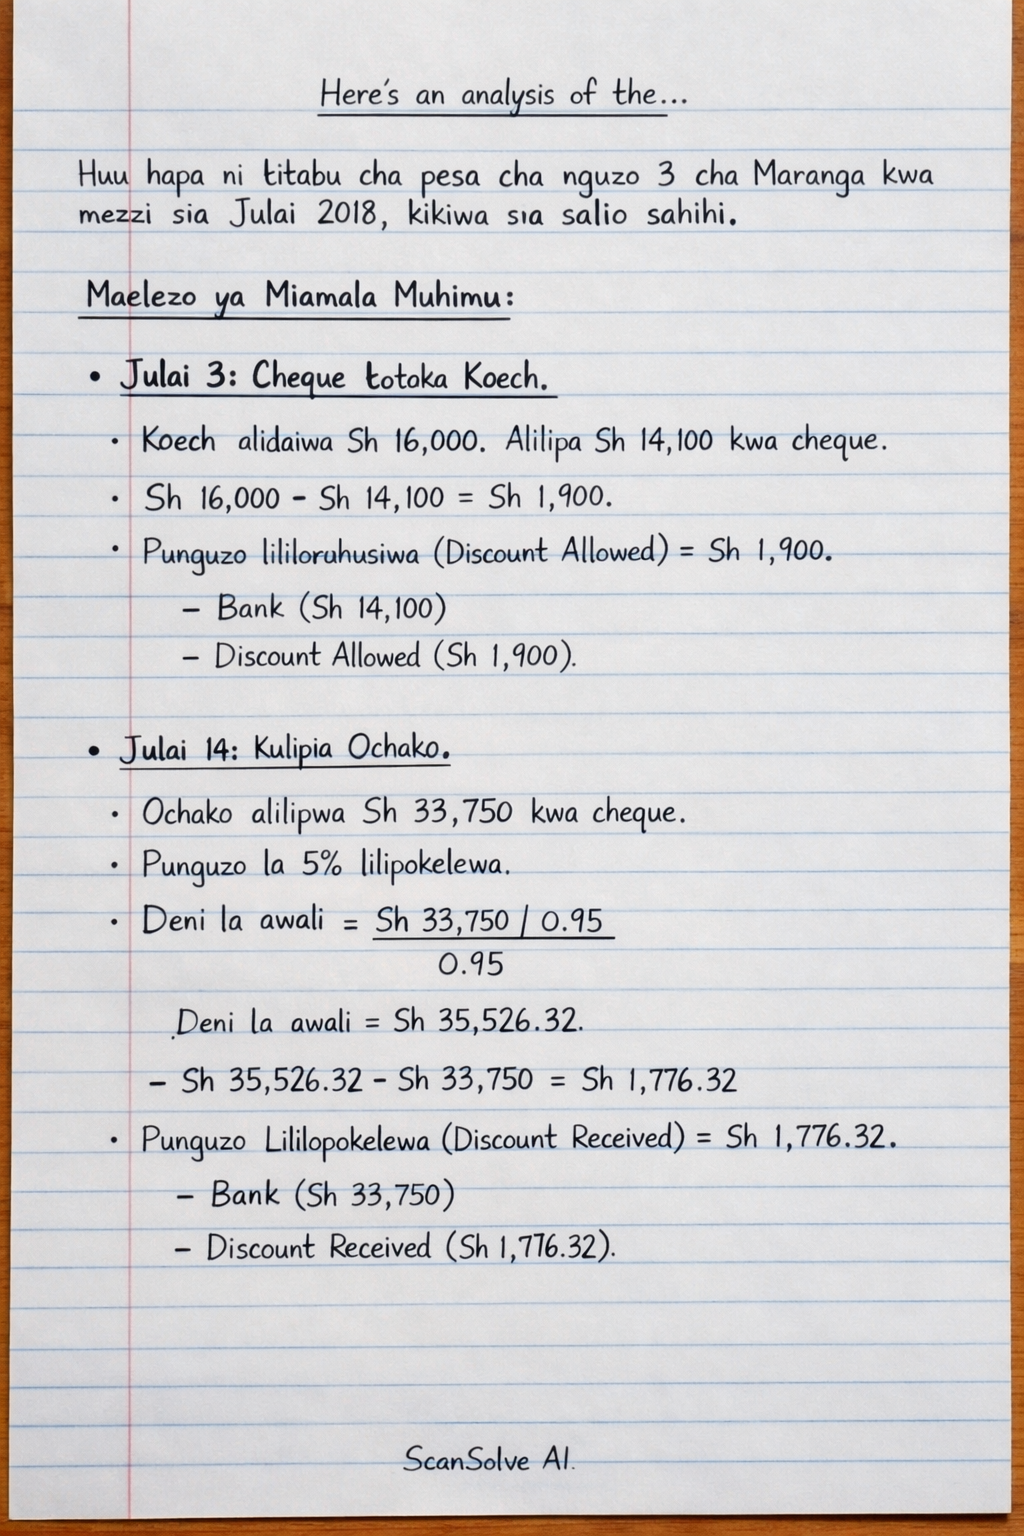 Here's an analysis of the...
Huu hapa ni titabu cha pesa cha nguzo 3 cha Maranga kwa
mezzi sia Julai 2018, kikiwa sia salio sahihi.
Maelezo ya Miamala Muhimu:
• Julai 3: Cheque totoka Koech.
• Koech alidaiwa Sh 16,000. Alilipa Sh 14,100 kwa cheque.
• Sh 16,000 - Sh 14,100 = Sh 1,900.
• Punguzo lililoruhusiwa (Discount Allowed) = Sh 1,900.
– Bank (Sh 14,100)
– Discount Allowed (Sh 1,900).
• Julai 14: Kulipia Ochako.
• Ochako alilipwa Sh 33,750 kwa cheque.
• Punguzo la 5% lilipokelewa.
• Deni la awali = Sh 33,750 / 0.95
0.95
Deni la awali = Sh 35,526.32.
– Sh 35,526.32 - Sh 33,750 = Sh 1,776.32
• Punguzo Lililopokelewa (Discount Received) = Sh 1,776.32.
– Bank (Sh 33,750)
– Discount Received (Sh 1,776.32).
ScanSolve AI.